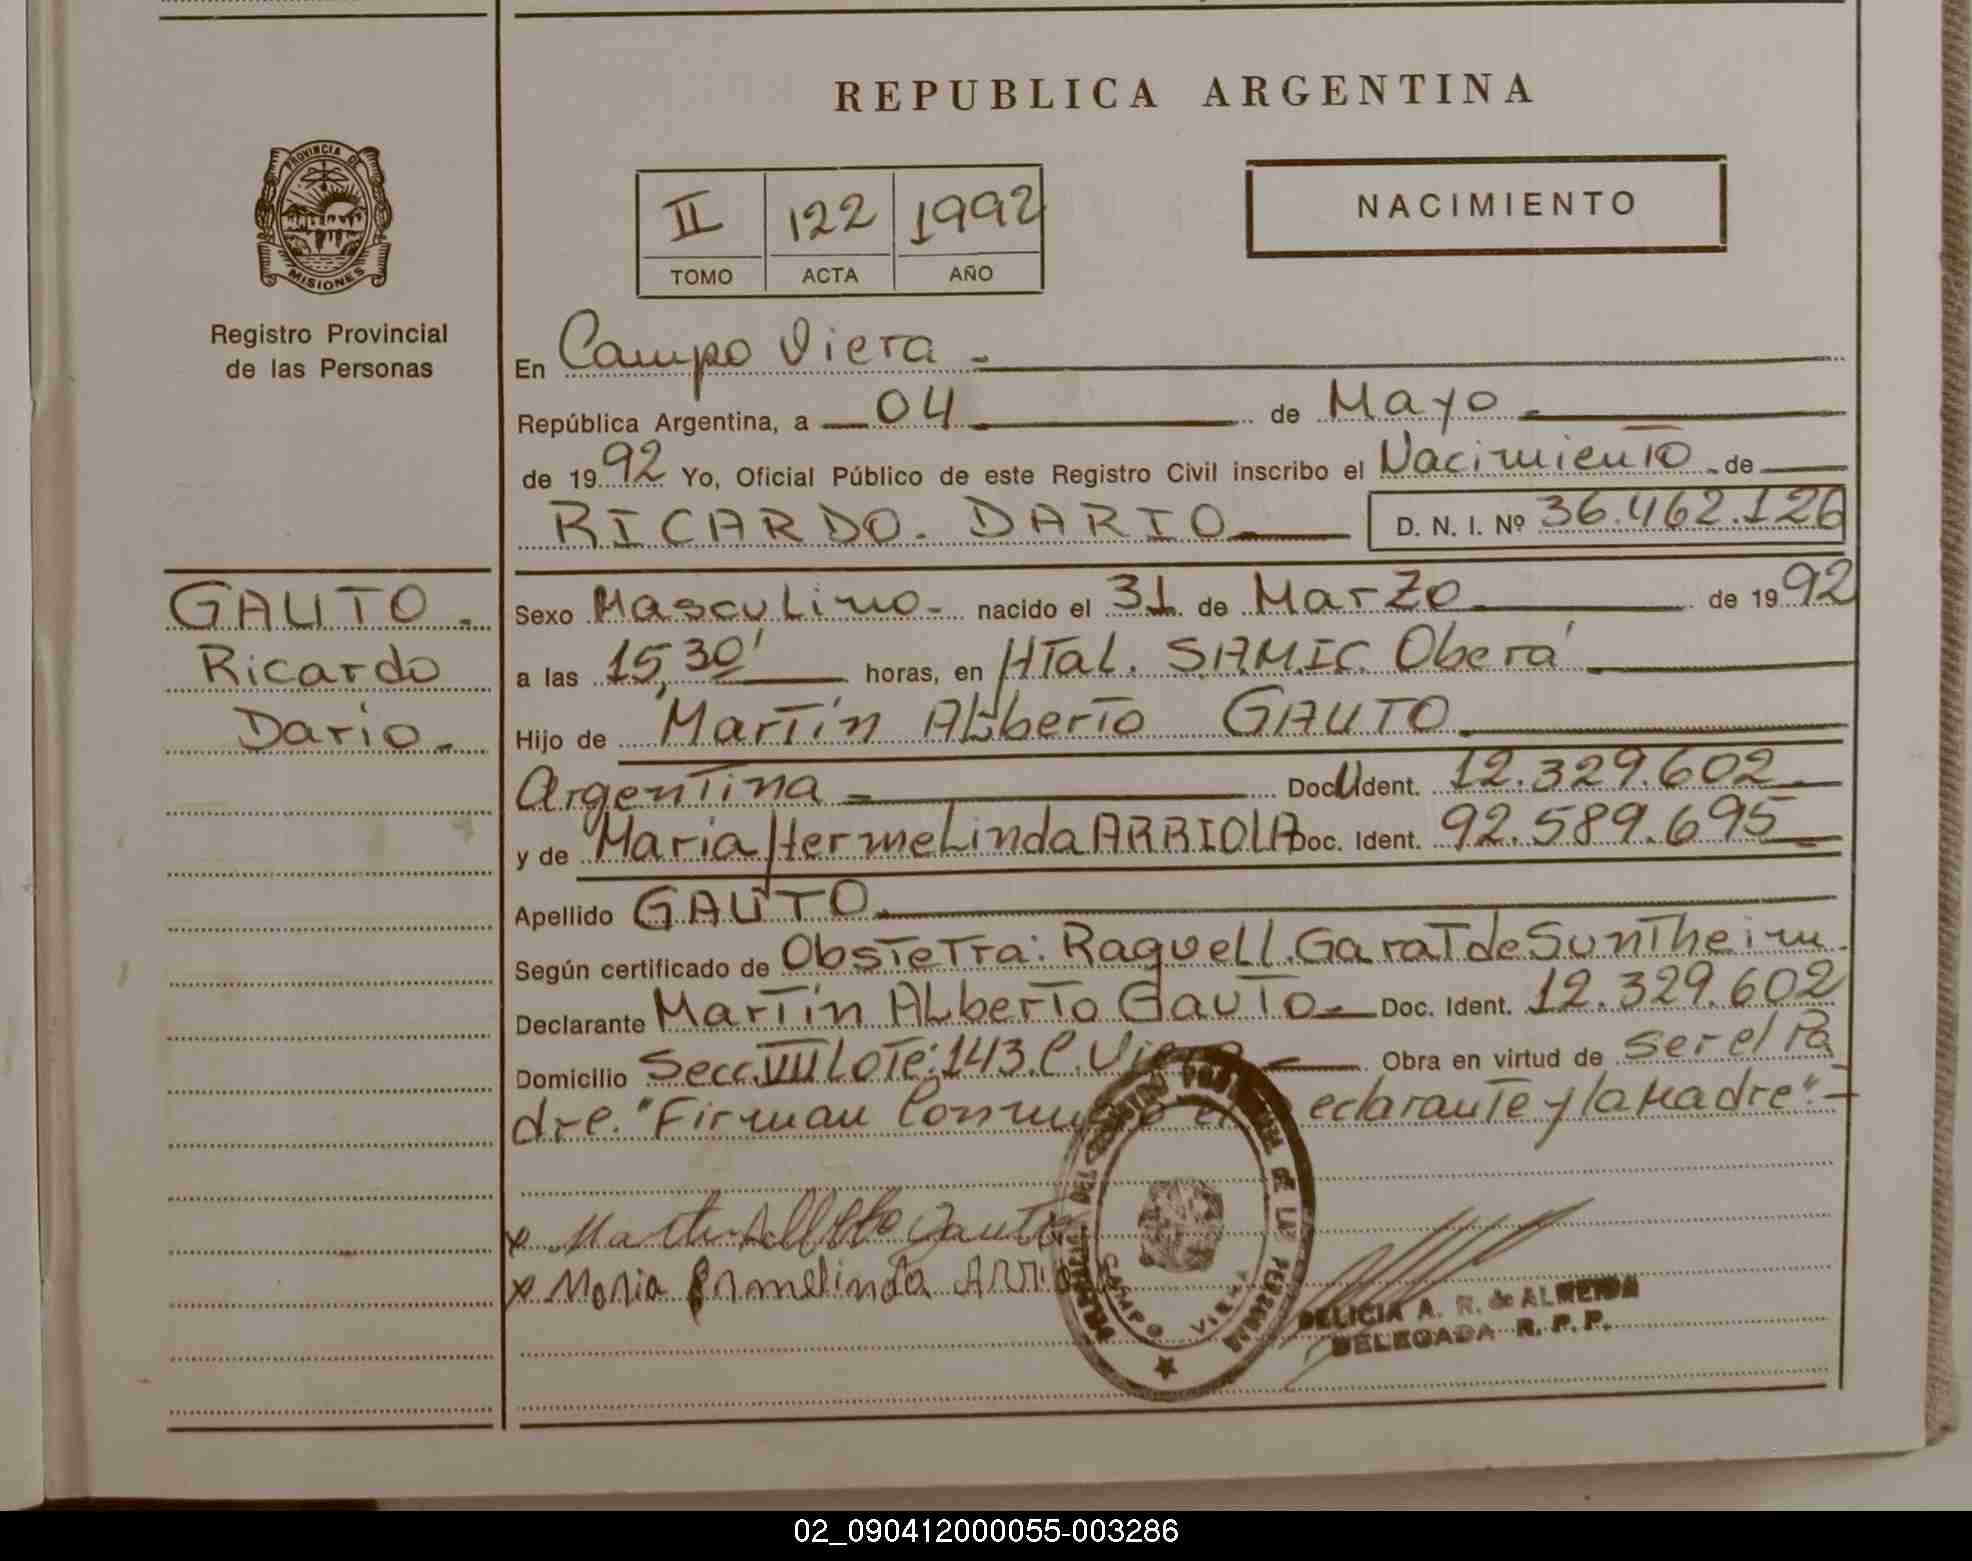 REPUBLICA ARGENTINA
PROVINCIA DE
MISIONES
Registro Provincial
de las Personas
II 122 1992
TOMO ACTA AÑO
NACIMIENTO
En Campo Viera -
República Argentina, a 04 de Mayo -
de 1992 Yo, Oficial Público de este Registro Civil inscribo el Nacimiento - de
RICARDO. DARIO D. N. I. Nº 36.462.126
GAUTO -
Ricardo
Dario. -
Sexo Masculino - nacido el 31 de Marzo de 1992
a las 15,30' horas, en HTal. SAMIC. Oberá
Hijo de Martín Alberto GAUTO
Argentina - Doc. Ident. 12.329.602
y de Maria Hermelinda ARRIOLA Doc. Ident. 92.589.695
Apellido GAUTO
Según certificado de Obstetra: Raquel I. Garat de Suntheim
Declarante Martín Alberto Gauto - Doc. Ident. 12.329.602
Domicilio Secc. VIII Lote: 143. C. Viera - Obra en virtud de ser el Pa
dre. "Firman Conmigo el Declarante y la Madre". -
x Martin Alberto Gauto
x Maria Ermelinda ARRIOLA
CAMPO VIERA
DELICIA A. R. de ALMEIDA
DELEGADA R. P. P.
02_090412000055-003286